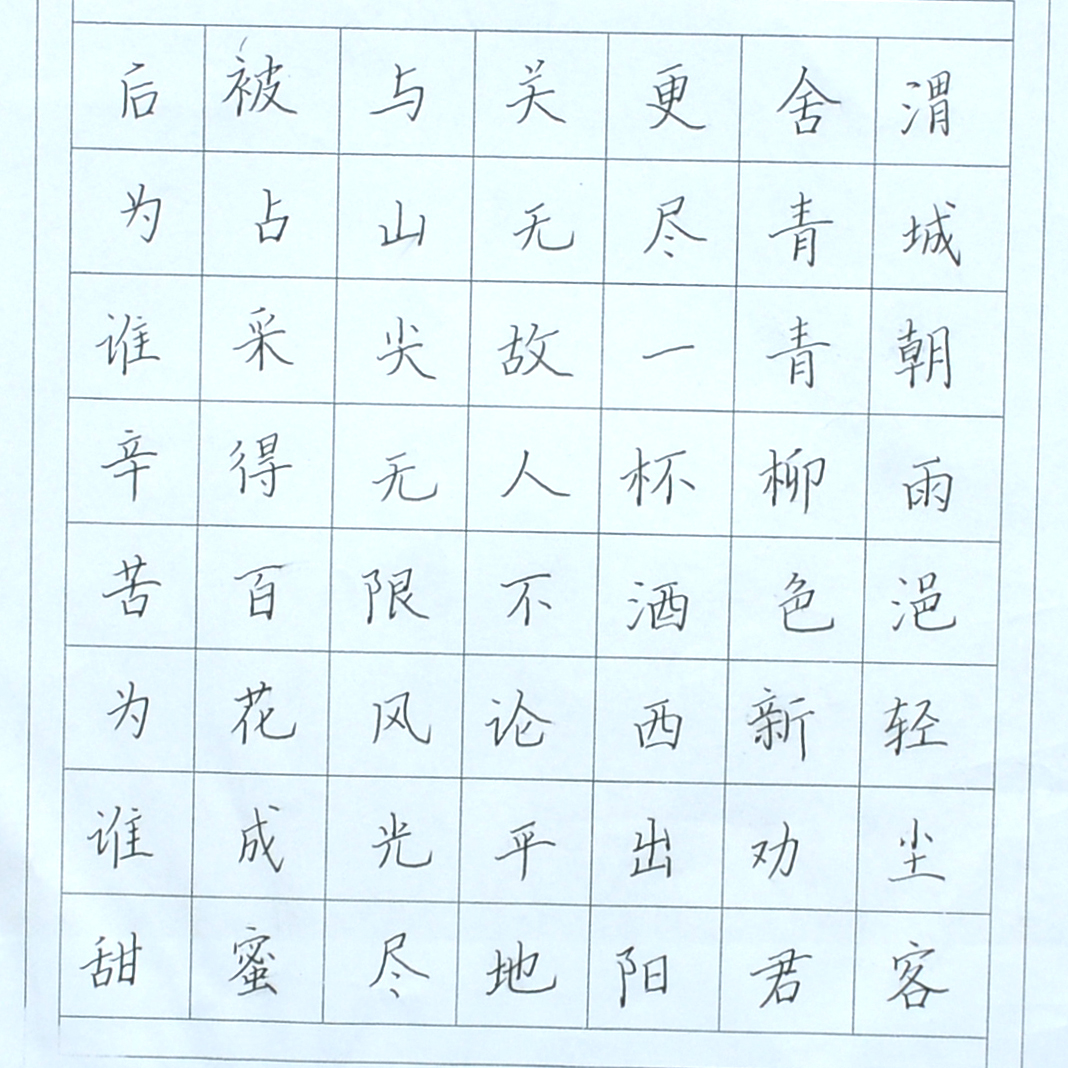 渭城朝雨浥轻尘客
舍青青柳色新劝君
更尽一杯酒西出阳
关无故人不论平地
与山尖无限风光尽
被占采得百花成蜜
后为谁辛苦为谁甜